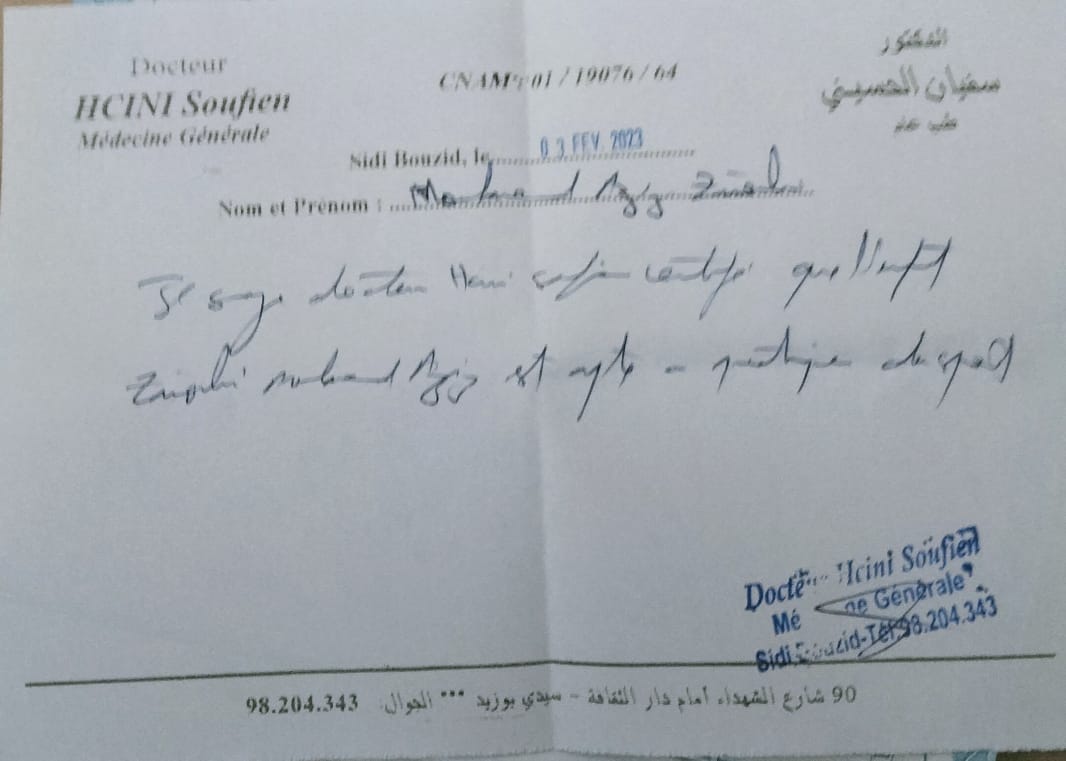 Docteur
HCINI Soufien
Médecine Générale
CNAM : 01 / 19076 / 64
الدكتور
سفيان الحسيني
طب عام
Sidi Bouzid, le 03 FEV. 2023
Nom et Prénom : Mohamed Aziz
Je docteur Hcini certifie que l'enfant
Mohamed Aziz est apte pratique de sport
Hcini Soufien
Générale
Tél.98.204.343
90 شارع الشهداء أمام دار الثقافة - سيدي بوزيد *** الجوال: 98.204.343